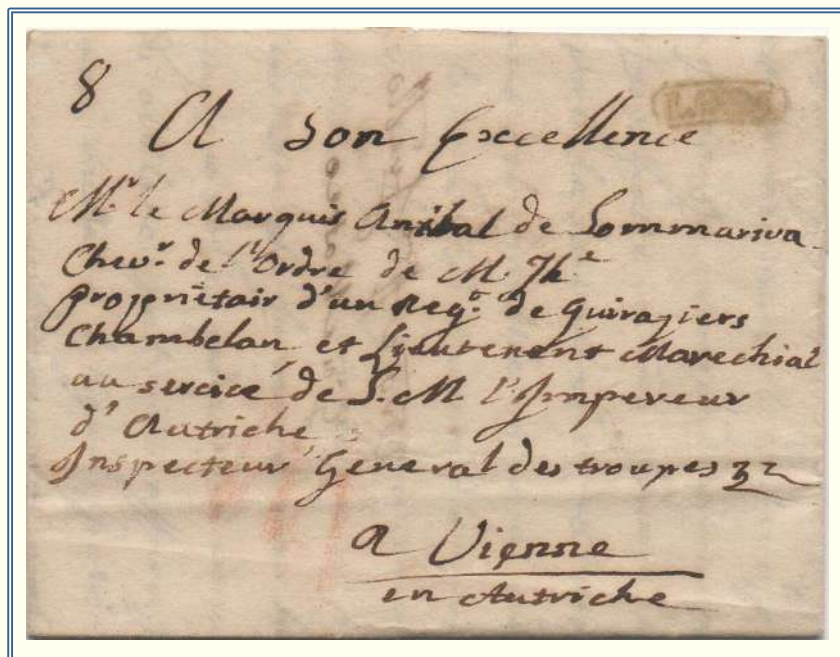 8
A Son Excellence
Mr. le Marquis Anibal de Sommariva
Chevr. de l'Ordre de M. The
proprietair d'un Regt. de Quiragiers
Chambelan et Lieutenent Marechial
au sercice de S. M l'Impereur
d'Autriche
Inspecteur General des troupes
a Vienne
en Autriche